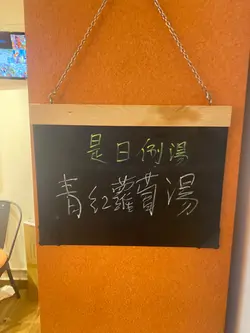 是日例湯
青紅蘿蔔湯